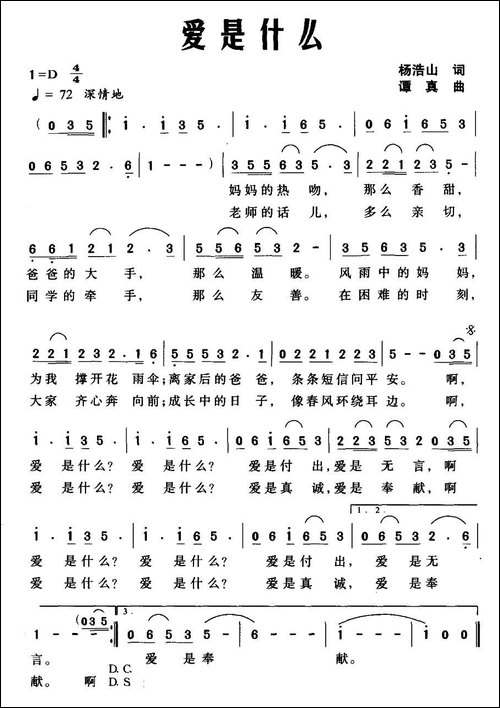 爱是什么
1=D 4/4
杨浩山 词
♩= 72 深情地
谭真 曲
(0 3 5 ‖: i · i 3 5 · | i · i 6 5 · | 0 6 1 6 5 3
0 6 5 3 2 · 6 | 1 - - - ) | 3 5 5 6 3 5 · 3 | 2 2 1 2 3 5 -
妈妈的热 吻, 那么香甜,
老师的话 儿, 多么亲切,
6 6 1 2 1 2 · 3 | 5 5 6 5 3 2 - | 3 5 6 3 5 · 3
爸爸的大 手, 那么温暖。 风雨中的妈 妈,
同学的牵 手, 那么友善。 在困难的时 刻,
2 2 1 2 3 2 · 1 6 | 5 5 5 3 2 · 1 | 0 2 2 1 2 3 2 2 | 5 - - 0 3 5
为我 撑开花 雨伞;离家后的爸 爸, 条条短信问平安。 啊,
大家 齐心奔 向前;成长中的日 子, 像春风环绕耳边。 啊,
i · i 3 5 · | i · i 6 5 · | 0 6 i 6 5 3 | 2 2 3 5 3 2 0 3 5
爱 是什么? 爱 是什么? 爱是付 出,爱是 无言,啊
爱 是什么? 爱 是什么? 爱是真 诚,爱是 奉献,啊
i · i 3 5 · | i · i 6 5 · | 0 6 i 6 5 3 | 0 6 5 3 2 · 6
1. 2.
爱 是什么? 爱 是什么? 爱是付 出, 爱是无
爱 是什么? 爱 是什么? 爱是真 诚, 爱是奉
1 - - (0 3 5) :‖ 0 6 5 3 5 | 6 - - - | i - - - | i 0 0 ‖
3.
言。 爱是奉 献。
D.C.
献。 啊 D.S